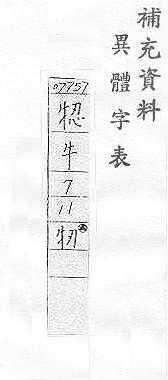 補充資料
異體字表
07757
牛
7
11
牣